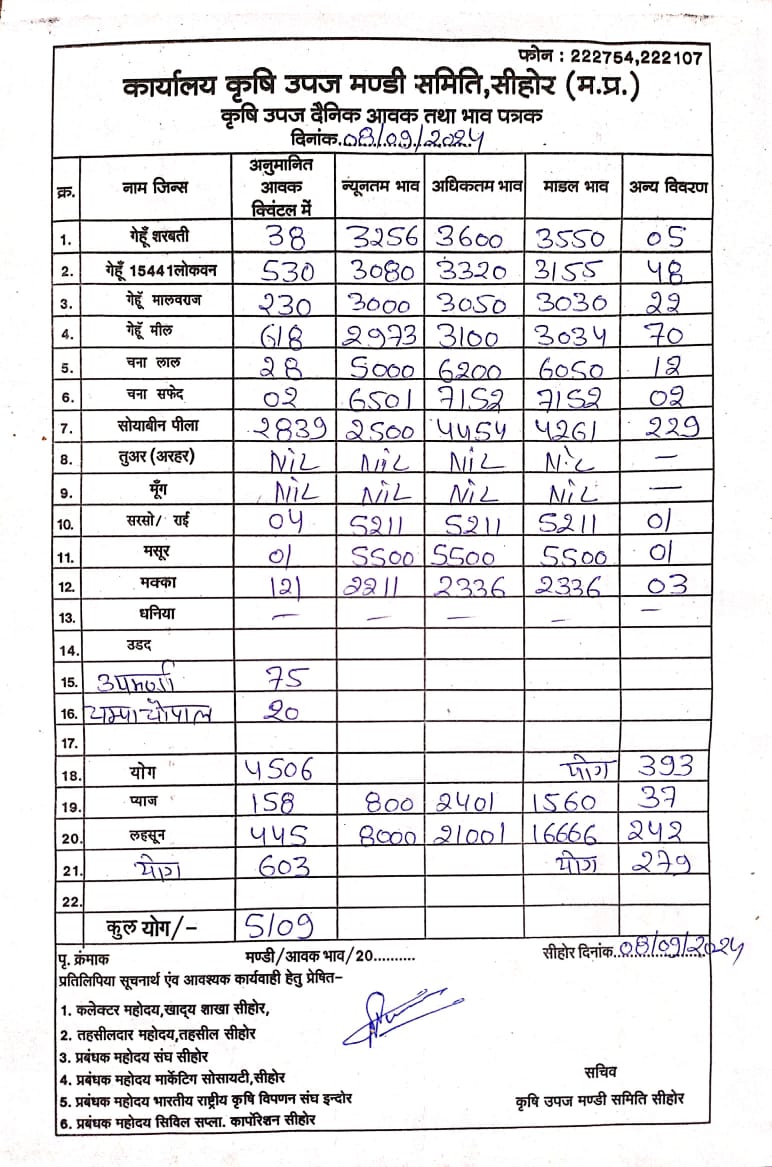 फोन : 222754,222107
कार्यालय कृषि उपज मण्डी समिति,सीहोर (म.प्र.)
कृषि उपज दैनिक आवक तथा भाव पत्रक
दिनांक.08/09/2024
क्र. नाम जिन्स अनुमानित आवक क्विंटल में न्यूनतम भाव अधिकतम भाव माडल भाव अन्य विवरण
1. गेहूँ शरबती 38 3256 3600 3550 05
2. गेहूँ 15441लोकवन 530 3080 3320 3155 48
3. गेहूँ मालवराज 230 3000 3050 3030 22
4. गेहूँ मील 618 2973 3100 3034 70
5. चना लाल 28 5000 6200 6050 12
6. चना सफेद 02 6501 7152 7152 02
7. सोयाबीन पीला 2839 2500 4454 4261 229
8. तुअर (अरहर) NiL NiL NiL NiL —
9. मूँग NiL NiL NiL NiL —
10. सरसो/ राई 04 5211 5211 5211 01
11. मसूर 01 5500 5500 5500 01
12. मक्का 121 2211 2336 2336 03
13. धनिया — — — — —
14. उडद
15. 75
16. 20
17.
18. योग 4506 योग 393
19. प्याज 158 800 2401 1560 37
20. लहसून 445 8000 21001 16666 242
21. योग 603 योग 279
22.
कुल योग/- 5109
पृ. क्रंमाक मण्डी/आवक भाव/20.......... सीहोर दिनांक..08/09/2024
प्रतिलिपिया सूचनार्थ एंव आवश्यक कार्यवाही हेतु प्रेषित–
1. कलेक्टर महोदय,खाद्य शाखा सीहोर,
2. तहसीलदार महोदय,तहसील सीहोर
3. प्रबंधक महोदय संघ सीहोर
4. प्रबंधक महोदय मार्केटिग सोसायटी,सीहोर
5. प्रबंधक महोदय भारतीय राष्ट्रीय कृषि विपणन संघ इन्दोर
6. प्रबंधक महोदय सिविल सप्ला. कार्पोरेशन सीहोर
सचिव
कृषि उपज मण्डी समिति सीहोर